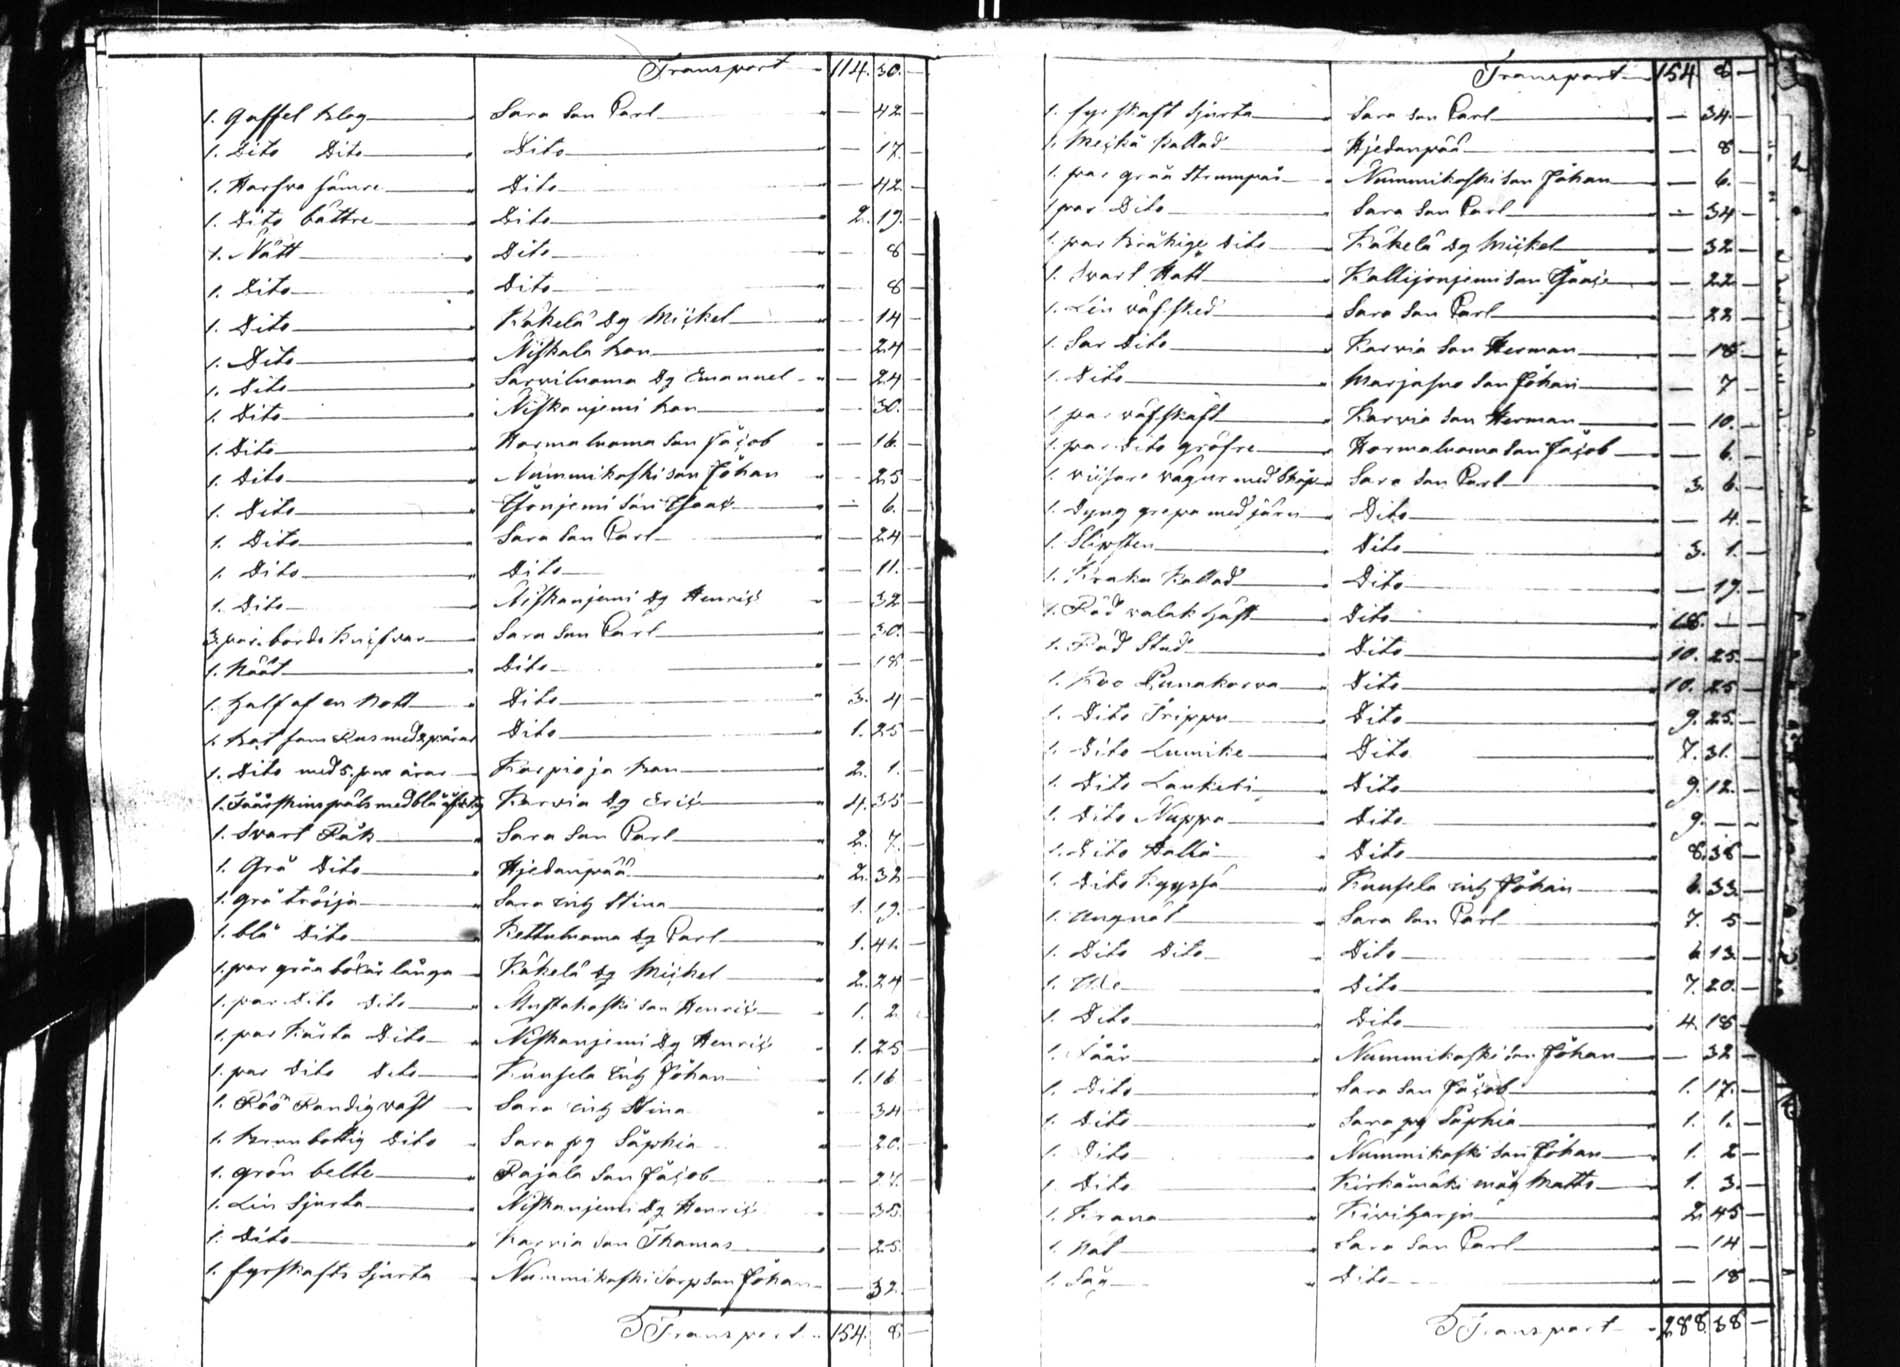 Transport 114. 30.
1. Gaffel klog Sara Son Carl — 42
1. Dito Dito Dito — 17.
1. Harfva sämre Dito — 42
1. Dito bättre Dito 2. 19.
1. Nätt Dito 8
1. Dito Dito 8
1. Dito Käkelä dg Mickel 14
1. Dito Niskala kon — 24
1. Dito Sarviluoma dg Emanuel — 24
1. Dito Niskanjemi kon — 30.
1. Dito Hormaluoma Son Jacob — 16
1. Dito Nummikoski Son Johan — 25
1. Dito — 6.
1. Dito Sara Son Carl — 24
1. Dito Dito 11.
1. Dito Niskanjemi dg Henric — 32
3. par bords knifvar Sara Son Carl — 30.
1. Nååt Dito — 18
1. Half af en nott Dito 3. 4
1. Båt Dito 1. 25
1. Dito med 5. par årar Karpioja kon 2. 1.
1. Fåårskins päls med blå Karvia dg Eric 4. 35
1. Svart Råk Sara Son Carl 2. 7.
1. Grå Dito Hjedanpää 2. 32
1. grå tröija Sara Stina 1. 19.
1. blå Dito Kettuluoma dg Carl 1. 41.
1. par gråa böxår långa Käkelä dg Mickel 2. 24
1. par Dito Dito Mustakoski Son Henric 1. 2
1. par kårta Dito Niskanjemi dg Henric 1. 25
1. par Dito Dito Kuusela Johan 1. 16
1. Röö Randig väst Sara Stina 34
1. Brun bottig Dito Sara pg Sophia 20.
1. grön belte Rajala Son Jacob — 27.
1. Lin Sjurta Niskanjemi dg Henric — 35
1. Dito Karvia Son Thomas — 25.
1. fyrskafts Sjurta Nummikoski Son Johan — 32.
Transport 154. 8

Transport 154. 8
1. fyrskaft Sjurta Sara Son Carl — 34.
1. kallad Hjedanpää — 8
1. par gråa Strumpår Nummikoski Son Johan — 6.
1 par Dito Sara Son Carl — 34
1. par Dito Käkelä dg Mickel — 32
1. Svart Hatt — 22
1. Lin väfsked Sara Son Carl — 22
1. Dito Karvia Son Herman — 18
1. Dito Son Johan — 7
1. par väfskaft Karvia Son Herman — 10.
1. par Dito gröfre Hormaluoma Son Jacob — 6.
1. vägur med Skåp Sara Son Carl 3. 6.
1. Dyng grepa med järn Dito — 4.
1. Slipsten Dito 3. 1.
1. kallad Dito — 19.
1. Röd valak häst Dito 18. —
1. Röd Stud Dito 10. 25.
1. Koo Punakorva Dito 10. 25
1. Dito Trippu Dito 9. 25.
1. Dito Lumike Dito 7. 31.
1. Dito Laukebi Dito 9. 12.
1. Dito Nuppa Dito 9. —
1. Dito Halla Dito 8. 38
1. Dito Kuusela Johan 6. 33.
1. ungnöt Sara Son Carl 7. 5
1. Dito Dito Dito 6 13.
1. Dito 7. 20.
1. Dito Dito 4. 18
1. Fåår Nummikoski Son Johan — 32
1. Dito Sara Son Jacob 1. 17.
1. Dito Sara pg Sophia 1. 1.
1. Dito Nummikoski Son Johan 1. 2
1. Dito Kirkämäki måg Matts 1. 3.
1. Krana Kiviharju 2. 45
1. Sara Son Carl — 14
1. Såg Dito — 18
Transport 288. 38